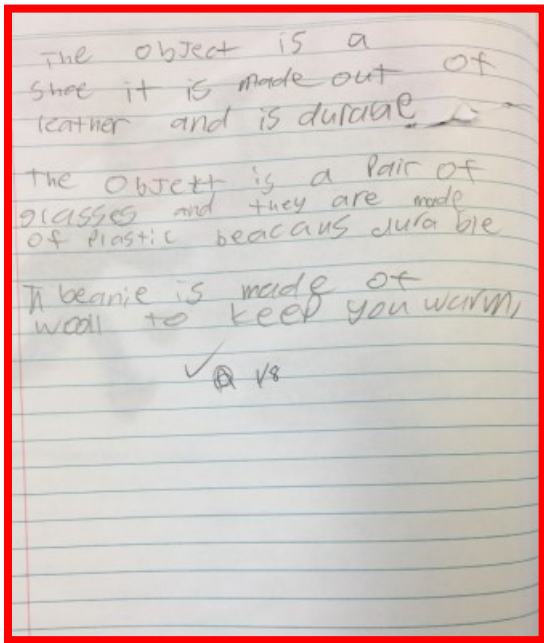 The object is a
Shoe it is made out of
leather and is durable
The Objext is a Pair of
glasses and they are made
of Plastic beacaus dura ble
A beanie is made of
wooll to keep you warm,
✓ 1/8